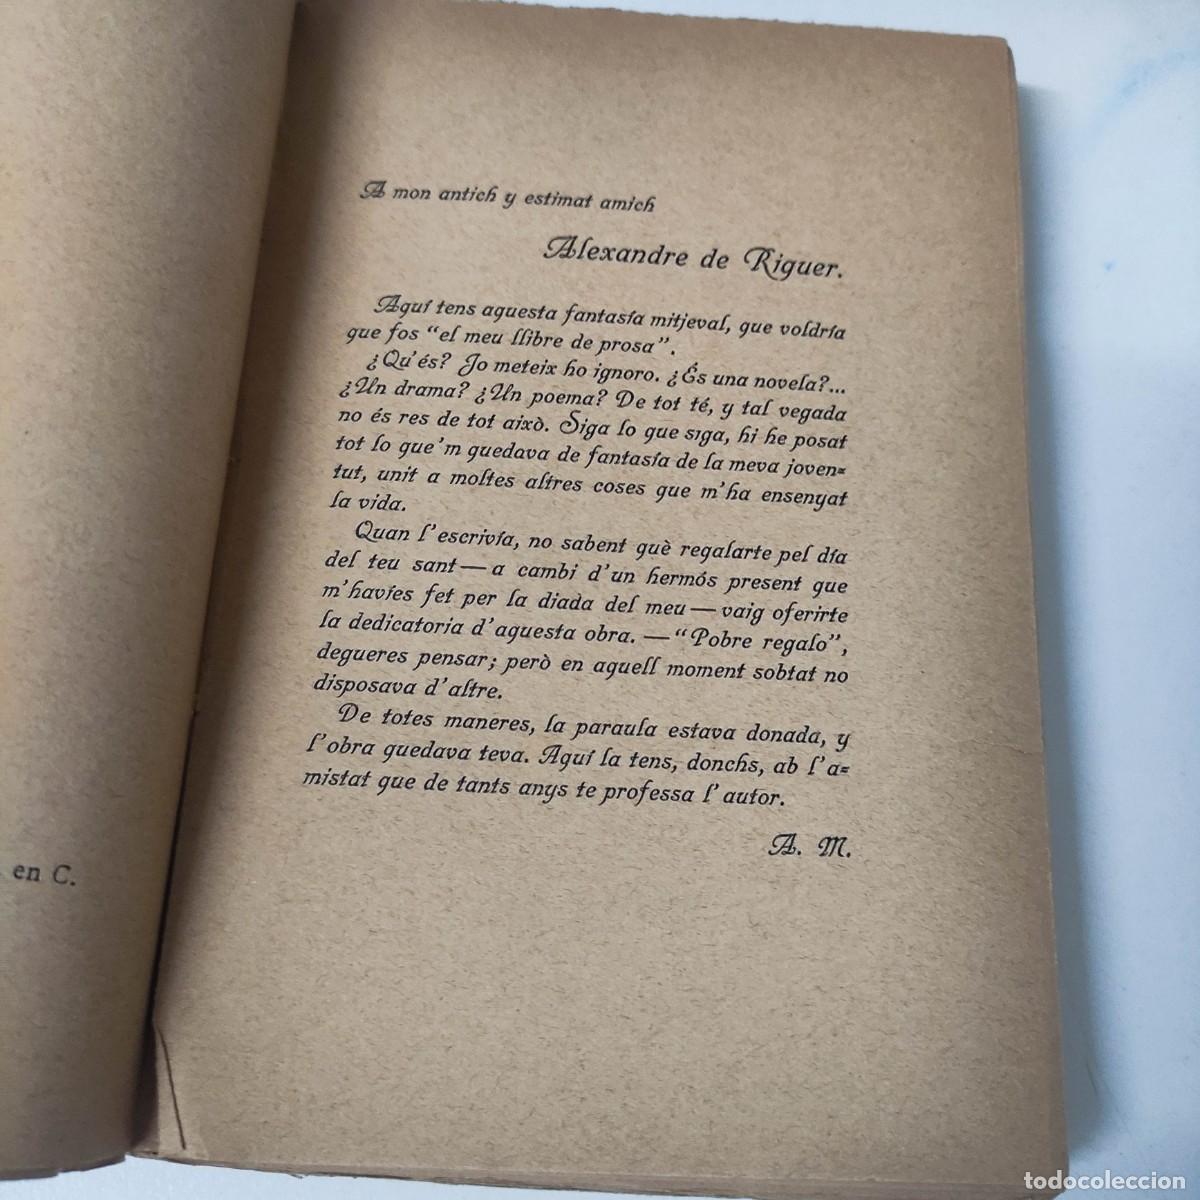 A mon antich y estimat amich
Alexandre de Riquer.
Aquí tens aquesta fantasía mitjeval, que voldría
que fos “el meu llibre de prosa”.
¿Qu'és? Jo meteix ho ignoro. ¿És una novela?...
¿Un drama? ¿Un poema? De tot té, y tal vegada
no és res de tot això. Siga lo que siga, hi he posat
tot lo que'm quedava de fantasía de la meva joven=
tut, unit a moltes altres coses que m'ha ensenyat
la vida.
Quan l'escrivía, no sabent què regalarte pel día
del teu sant—a cambi d'un hermós present que
m'havíes fet per la diada del meu—vaig oferirte
la dedicatoria d'aquesta obra. —“Pobre regalo”,
degueres pensar; però en aquell moment sobtat no
disposava d'altre.
De totes maneres, la paraula estava donada, y
l'obra quedava teva. Aquí la tens, donchs, ab l'a=
mistat que de tants anys te professa l'autor.
A. M.
en C.
todocoleccion